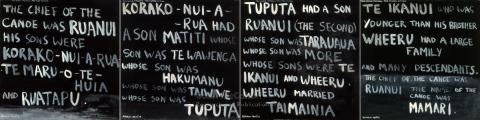 THE CHIEF OF THE
CANOE WAS RUANUI
HIS SONS WERE
KORAKO-NUI-A-RUA
TE MARU-O-TE-
HUIA
AND RUATAPU.
KORAKO-NUI-A-
-RUA HAD
A SON MATITI WHOSE
SON WAS TE WAWENGA
WHOSE SON WAS
HAKUMANU
WHOSE SON WAS TAIWIWE
WHOSE SON WAS
TUPUTA
TUPUTA HAD A SON
RUANUI (THE SECOND)
WHOSE SON WAS TARAUAUA
WHOSE SON WAS MORE
WHOSE SONS WERE TE
IKANUI AND WHEERU.
WHEERU MARRIED
TAIMAINIA
TE IKANUI WHO WAS
YOUNGER THAN HIS BROTHER
WHEERU HAD A LARGE
FAMILY
AND MANY DESCENDANTS.
THE CHIEF OF THE CANOE WAS
RUANUI THE NAME OF THE
CANOE WAS
MAMARI.